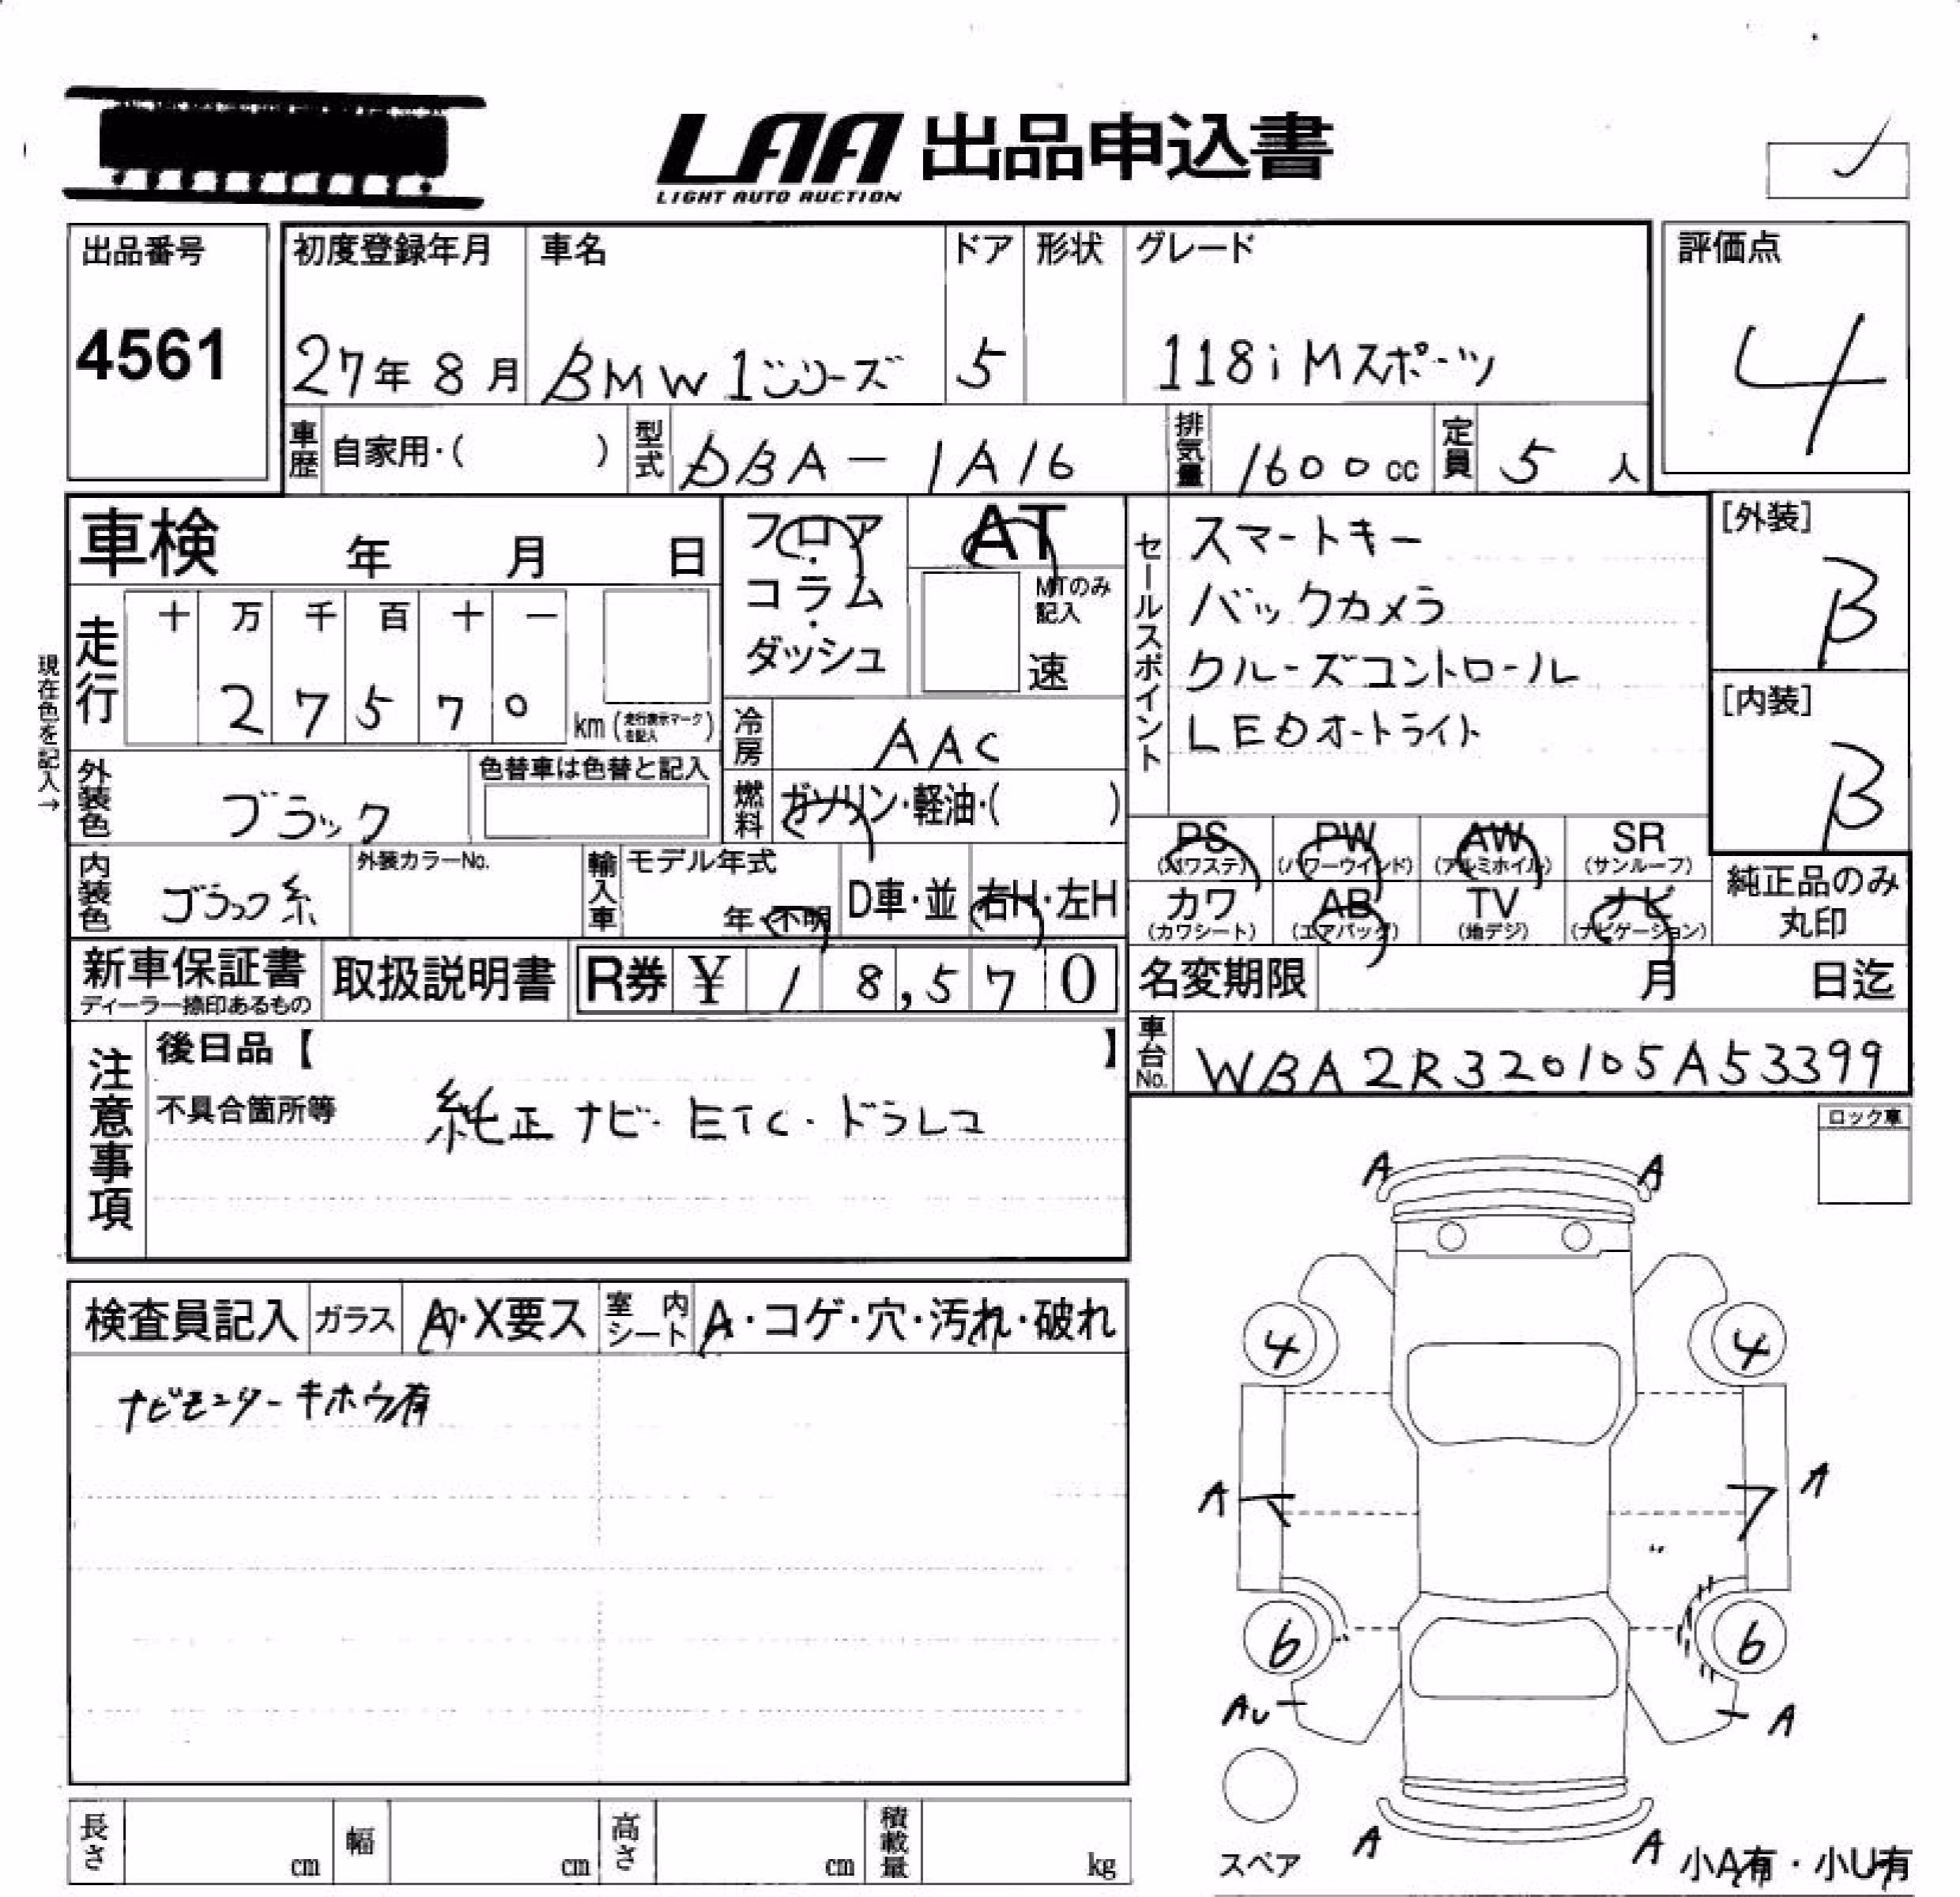 LAA 出品申込書
LIGHT AUTO AUCTION
出品番号
4561
初度登録年月 車名 ドア 形状 グレード
27年 8月 BMW 1シリーズ 5 118i Mスポーツ
評価点
4
車歴 自家用・( ) 型式 DBA-1A16 排気量 1600cc 定員 5人
車検 年 月 日
フロア・コラム・ダッシュ
AT
MTのみ記入
速
セールスポイント
スマートキー
バックカメラ
クルーズコントロール
LEDオートライト
[外装]
B
[内装]
B
現在色を記入→
走行 十 万 千 百 十 一
2 7 5 7 0 km (走行表示マークを記入)
冷房 AAC
燃料 ガソリン・軽油・( )
外装色 ブラック 色替車は色替と記入
内装色 ブラック系 外装カラーNo.
輸入車 モデル年式 年・不明 D車・並 右H・左H
PS (パワステ) PW (パワーウインド) AW (アルミホイル) SR (サンルーフ)
カワ (カワシート) AB (エアバッグ) TV (地デジ) ナビ (ナビゲーション)
純正品のみ丸印
新車保証書 取扱説明書 R券 ¥ 1 8,5 7 0
ディーラー捺印あるもの
名変期限 月 日迄
車台No. WBA2R320105A53399
注意事項
後日品【 】
不具合箇所等 純正ナビ・ETC・ドラレコ
ロック車
A A
検査員記入 ガラス A・X要ス 室内シート A・コゲ・穴・汚れ・破れ
ナビモニターキホウ有
4 4
A A
6 6
AU A
スペア
A A
小A有・小U有
長さ cm 幅 cm 高さ cm 積載量 kg